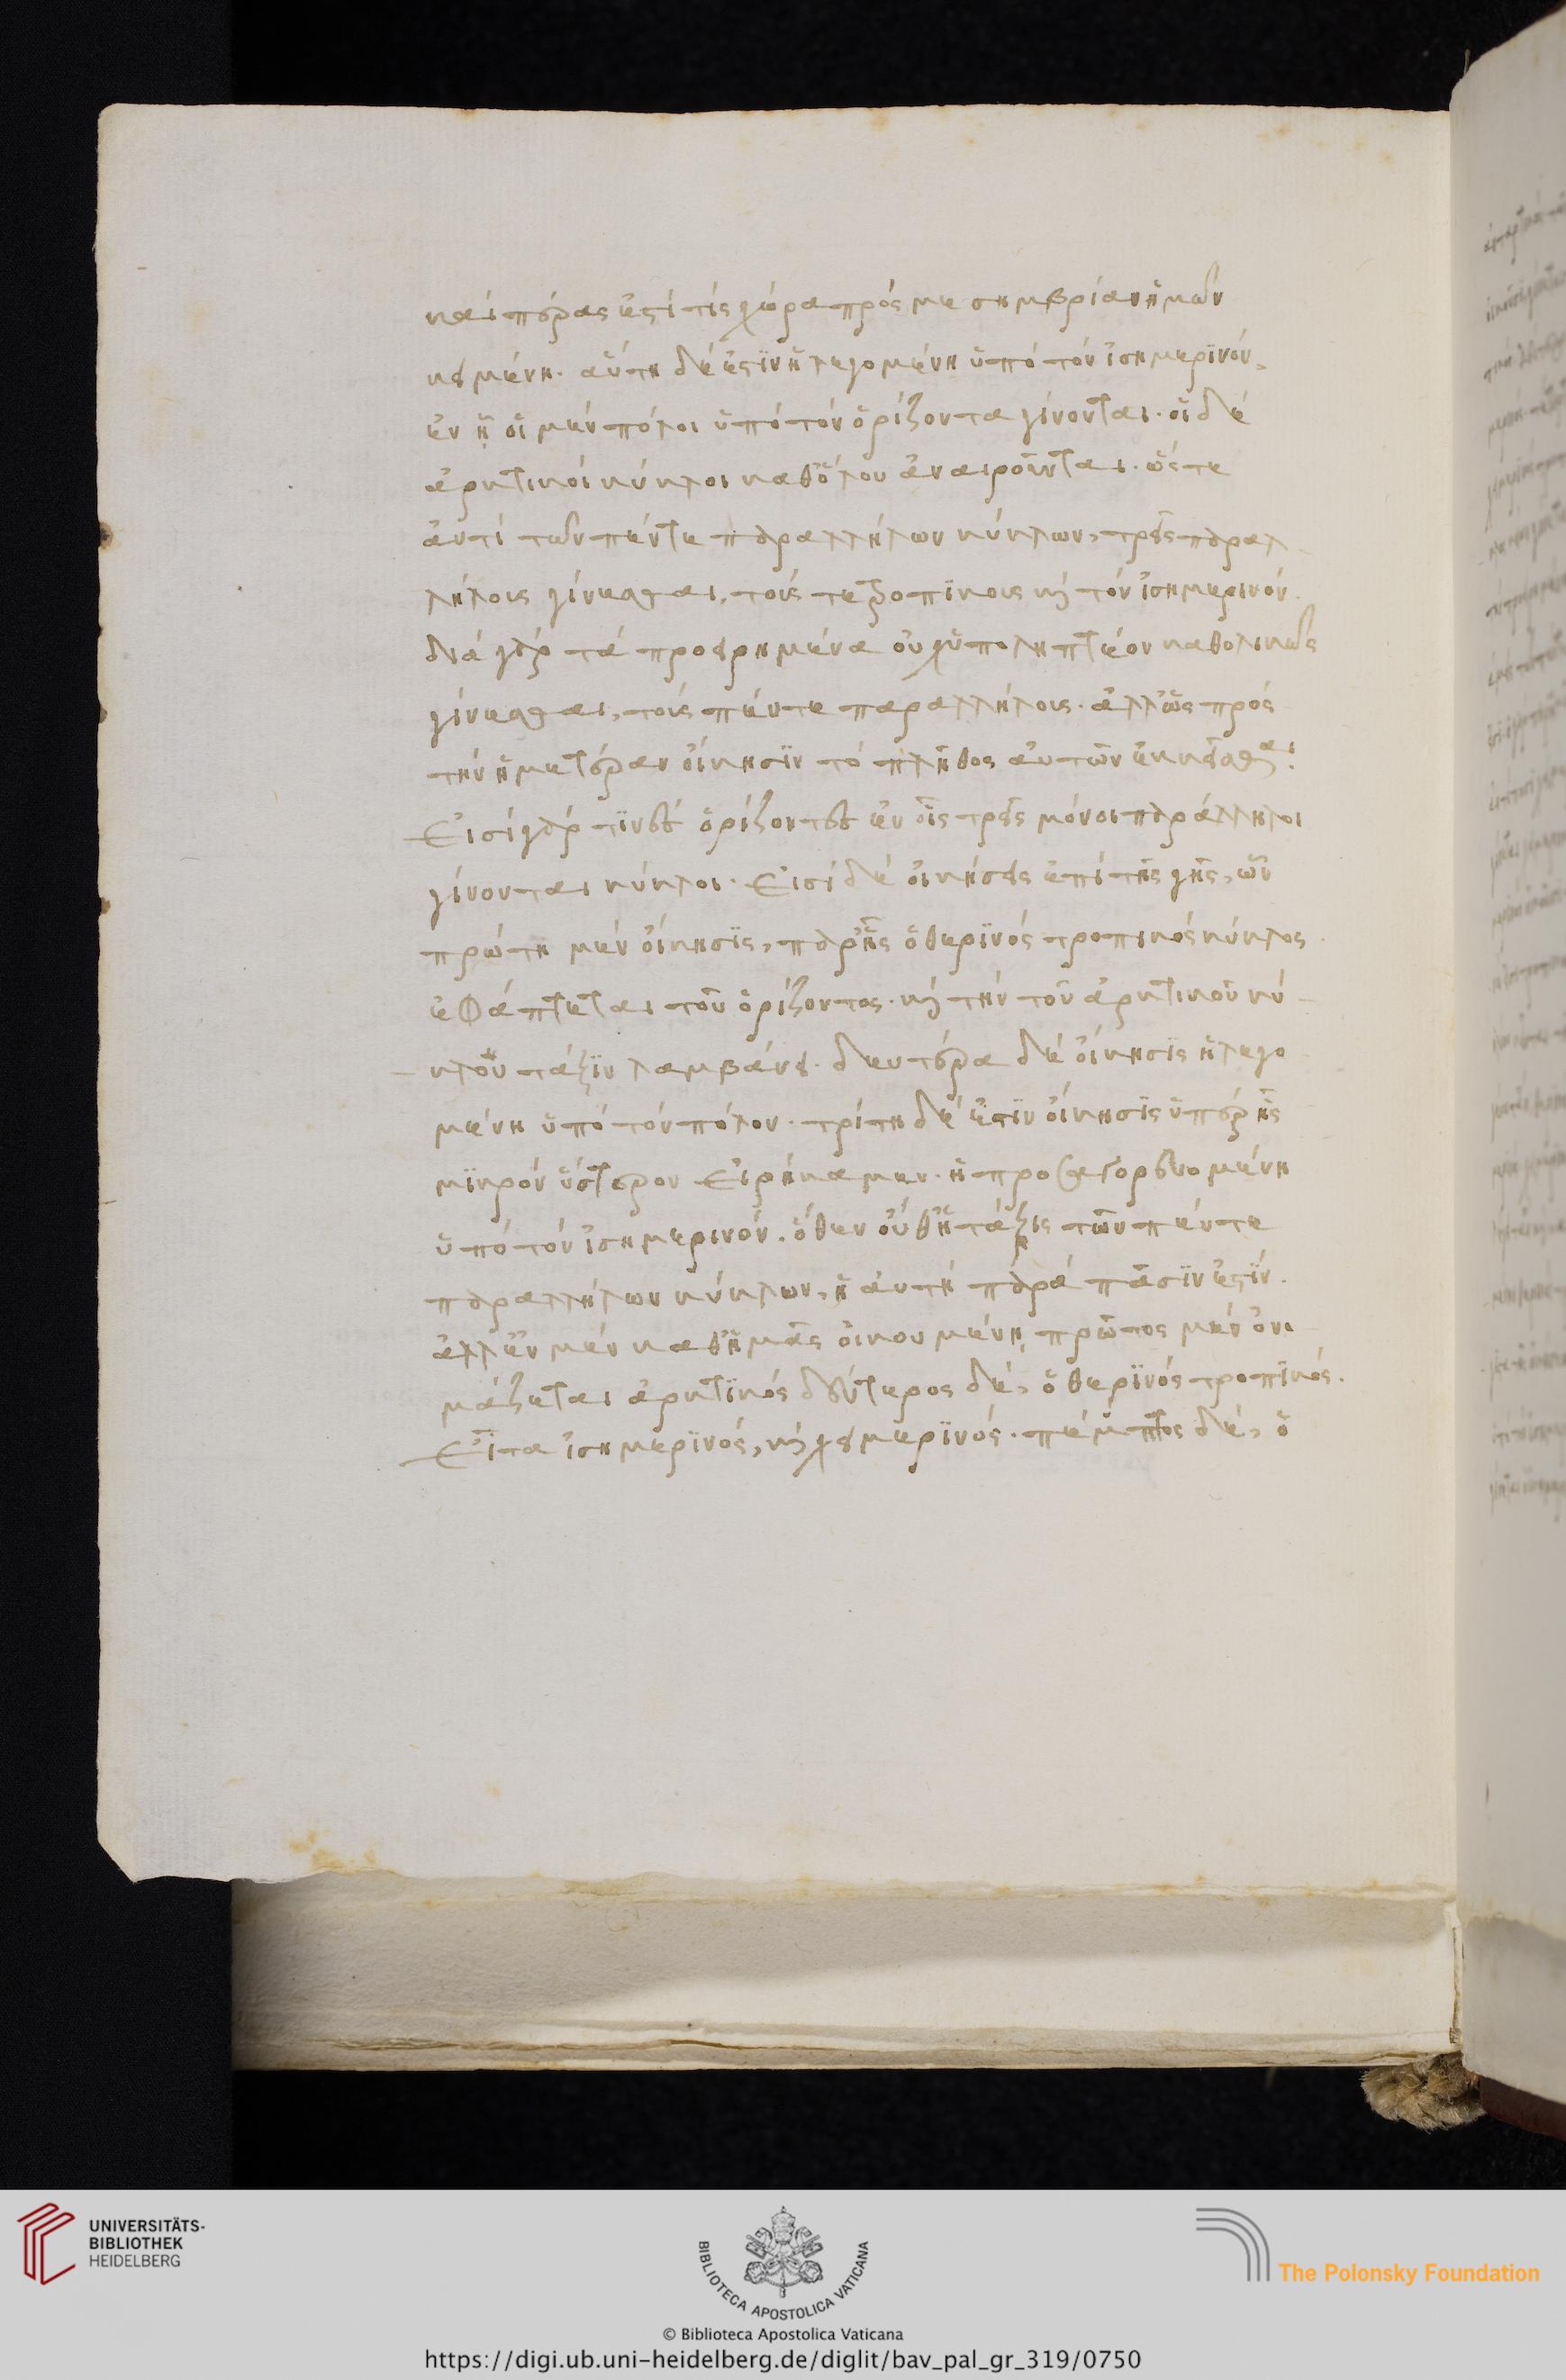 καὶ πέρας ἐστί τις χώρα πρὸς μεσημβρίαν ἡμῶν
κειμένη. αὕτη δέ ἐστϊν ἡ λεγομένη ὑπὸ τὸν ἰσημερϊνόν,
ἐν ᾗ οἱ μὲν πόλοι ὑπὸ τὸν ὁρίζοντα γίνονται. οἱ δὲ
ἀρκτικοὶ κύκλοι καθόλου ἀναιροῦνται. ὥστε
ἀντὶ τῶν πέντε παραλλήλων κύκλων, τρεῖς παραλ
λήλους γίνεσθαι, τούς τε τροπϊκοὺς καὶ τὸν ἰσημερινόν.
διὰ γὰρ τὰ προειρημένα οὐχ ὑποληπτέον καθολικῶς
γίνεσθαι, τοὺς πέντε παραλλήλους. ἀλλ' ὡς πρὸς
τὴν ἡμετέραν οἴκησϊν τὸ πλῆθος αὐτῶν ἐκκεῖσθαι.
Εἰσὶ γάρ τϊνες ὁρίζοντες ἐν οἷς τρεῖς μόνοι παράλληλοι
γίνονται κύκλοι. Εἰσὶ δὲ οἰκήσεις ἐπὶ τῆς γῆς, ὧν
πρώτη μὲν οἴκησϊς, παρ' ἧς ὁ θερϊνὸς τροπικὸς κύκλος
ἐφάπτεται τοῦ ὁρίζοντος. καὶ τὴν τοῦ ἀρκτικοῦ κύ
κλου τάξϊν λαμβάνει. δευτέρα δὲ οἴκησϊς ἡ λεγο
μένη ὑπὸ τὸν πόλον. τρίτη δέ ἐστϊν οἴκησϊς ὑπὲρ ἧς
μϊκρὸν ὕστερον Εἰρήκαμεν. ἡ προσαγορευομένη
ὑπὸ τὸν ἰσημερινόν. ὅθεν οὐθ' ἡ τάξις τῶν πέντε
παραλλήλων κύκλων, ἡ αὐτὴ παρὰ πᾶσϊν ἐστϊν.
ἀλλ' ἐν μὲν καθ' ἡμᾶς οἰκουμένῃ, πρῶτος μὲν ὀνο
μάζεται ἀρκτϊκὸς δεύτερος δὲ, ὁ θερϊνὸς τροπϊκός.
Εἶτα ἰσημερϊνὸς, καὶ χειμερϊνός. πέμπτος δὲ, ὁ
UNIVERSITÄTS-
BIBLIOTHEK
HEIDELBERG
BIBLIOTECA APOSTOLICA VATICANA
The Polonsky Foundation
© Biblioteca Apostolica Vaticana
https://digi.ub.uni-heidelberg.de/diglit/bav_pal_gr_319/0750